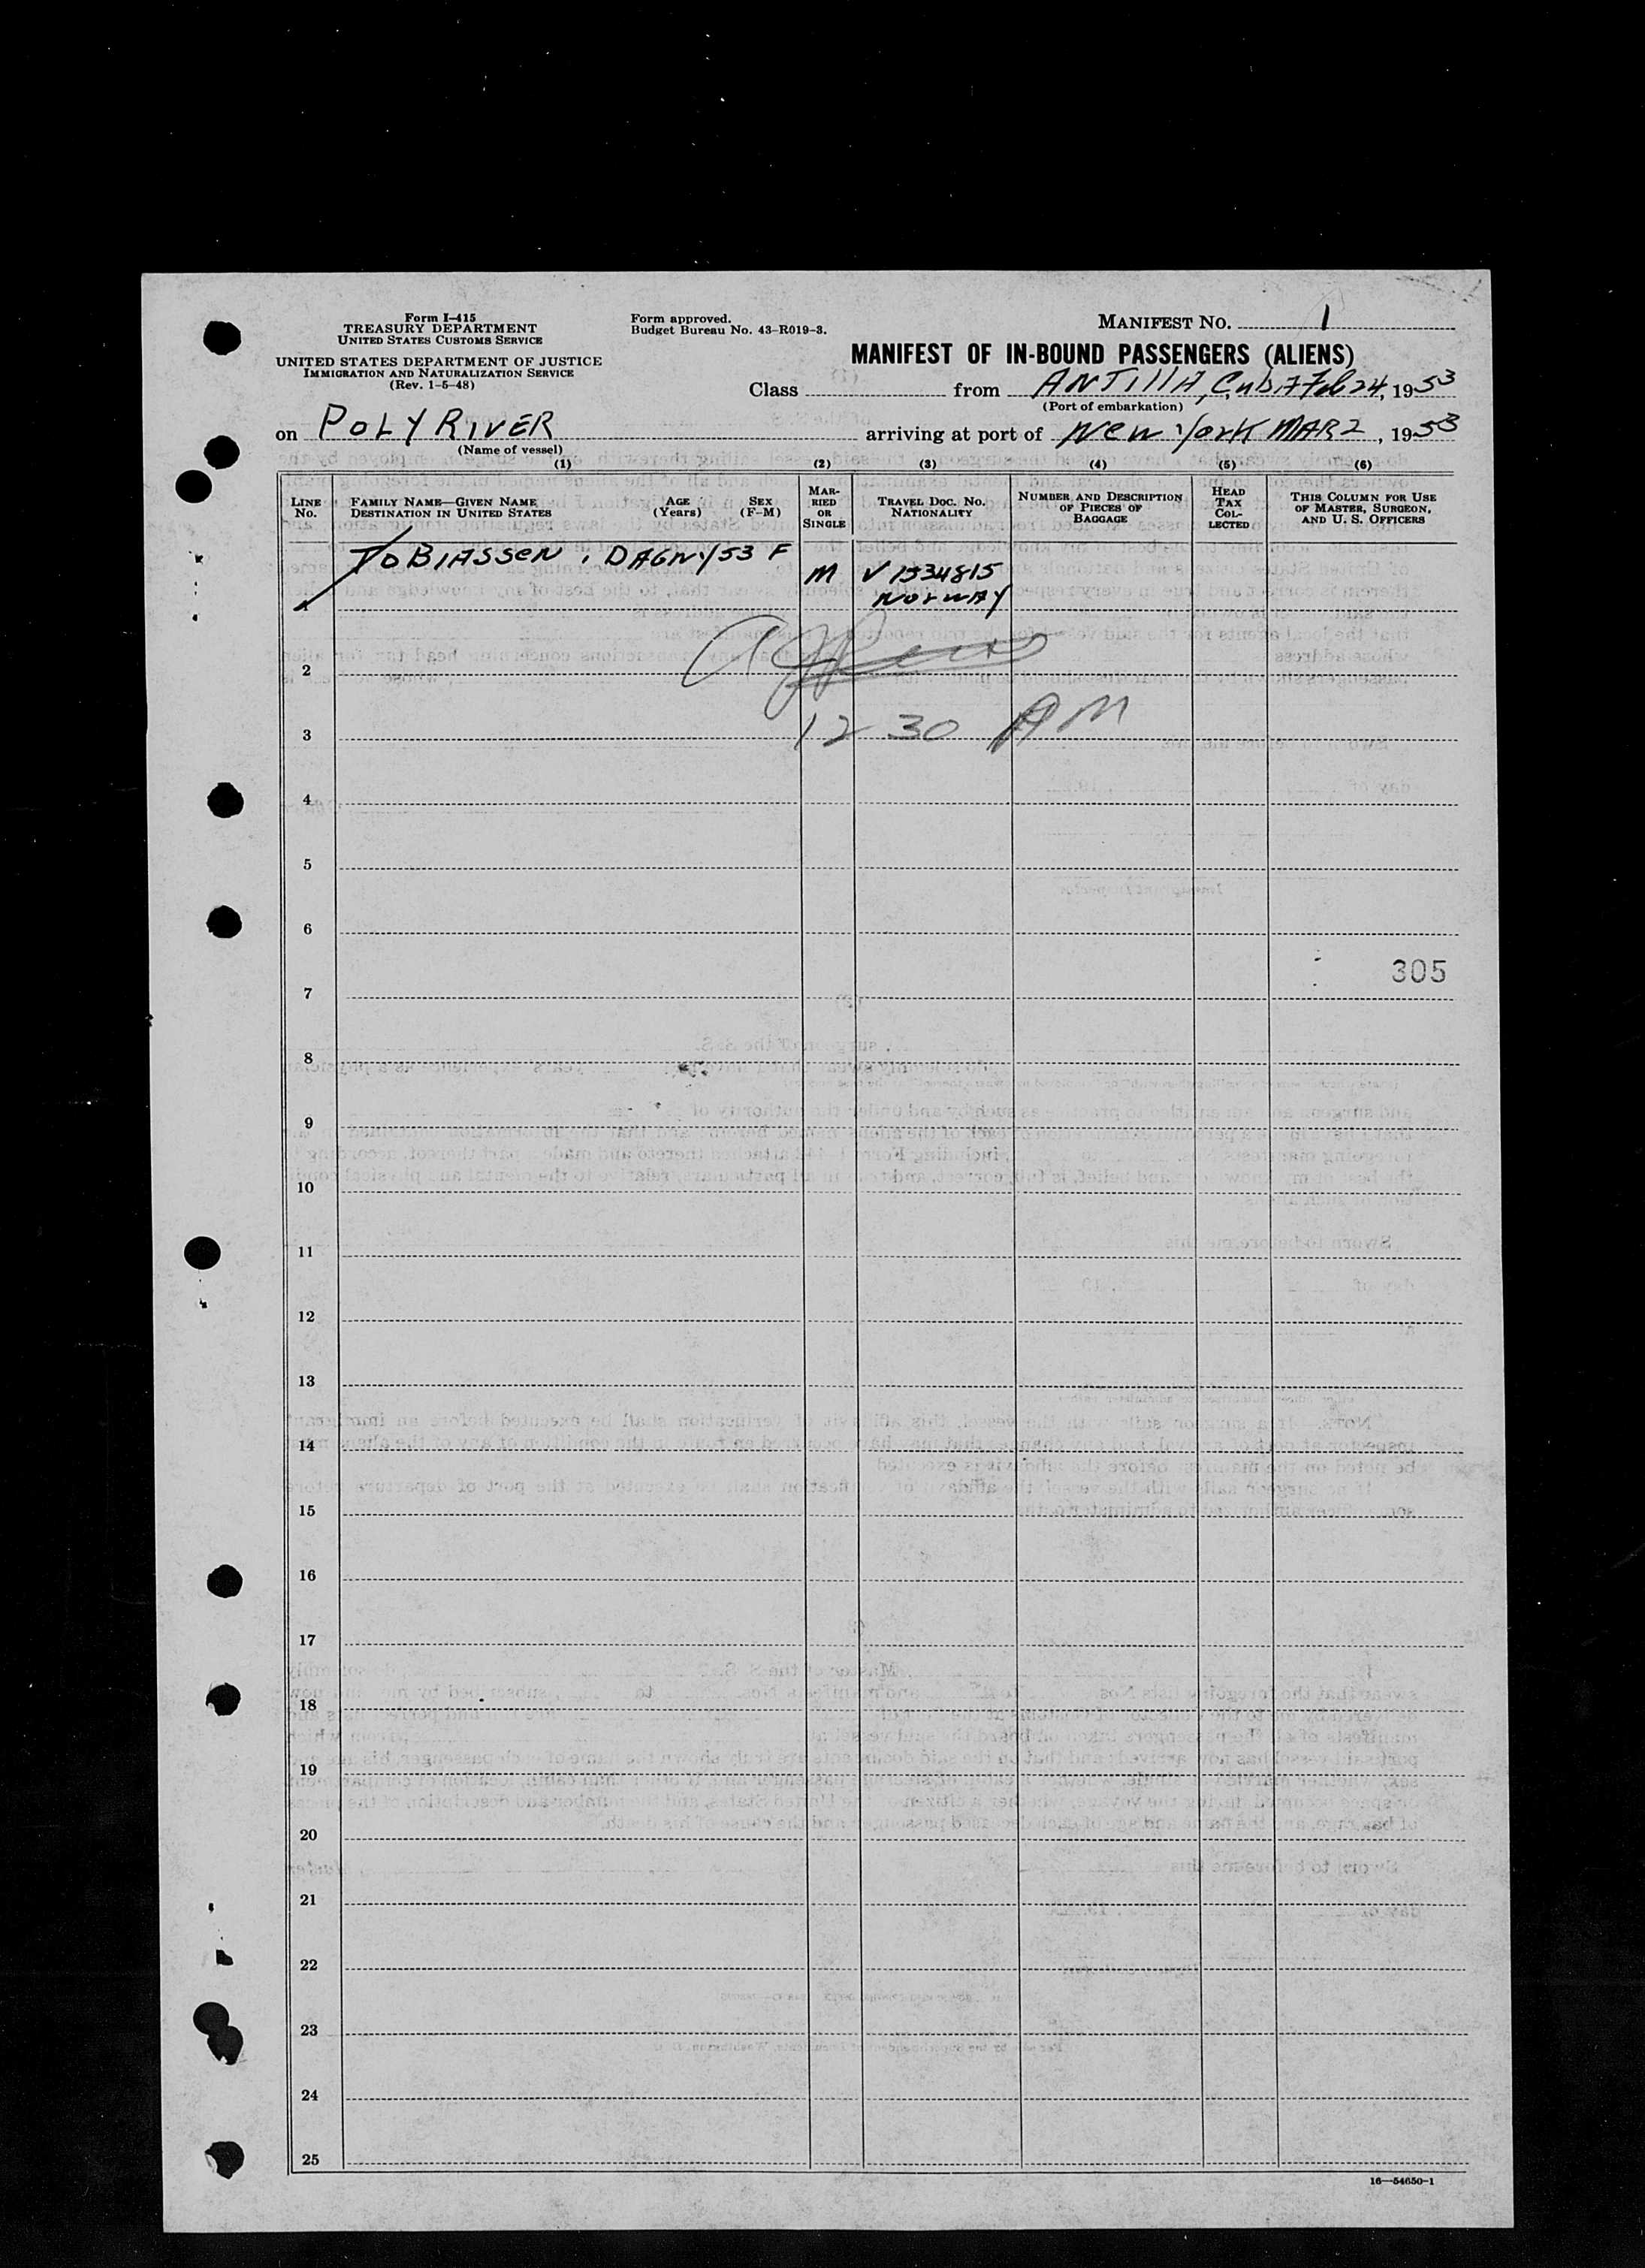 Form I-415
TREASURY DEPARTMENT
UNITED STATES CUSTOMS SERVICE
UNITED STATES DEPARTMENT OF JUSTICE
IMMIGRATION AND NATURALIZATION SERVICE
(Rev. 1-5-48)
Form approved.
Budget Bureau No. 43-R019-3.
MANIFEST NO. 1
MANIFEST OF IN-BOUND PASSENGERS (ALIENS)
Class from ANTILLA, CubA Feb 24, 1953
(Port of embarkation)
on POLYRIVER arriving at port of New York MAR 2, 1953
(Name of vessel)
(1) (2) (3) (4) (5) (6)
LINE No. FAMILY NAME—GIVEN NAME DESTINATION IN UNITED STATES AGE (Years) SEX (F-M) MARRIED OR SINGLE TRAVEL DOC. NO. NATIONALITY NUMBER AND DESCRIPTION OF PIECES OF BAGGAGE HEAD TAX COLLECTED THIS COLUMN FOR USE OF MASTER, SURGEON, AND U. S. OFFICERS
TOBIASSEN, DAGNY 53 F M V 1534815
NORWAY
2
3 12 30 AM
4
5
6
305
7
8
9
10
11
12
13
14
15
16
17
18
19
20
21
22
23
24
25
16—54650-1